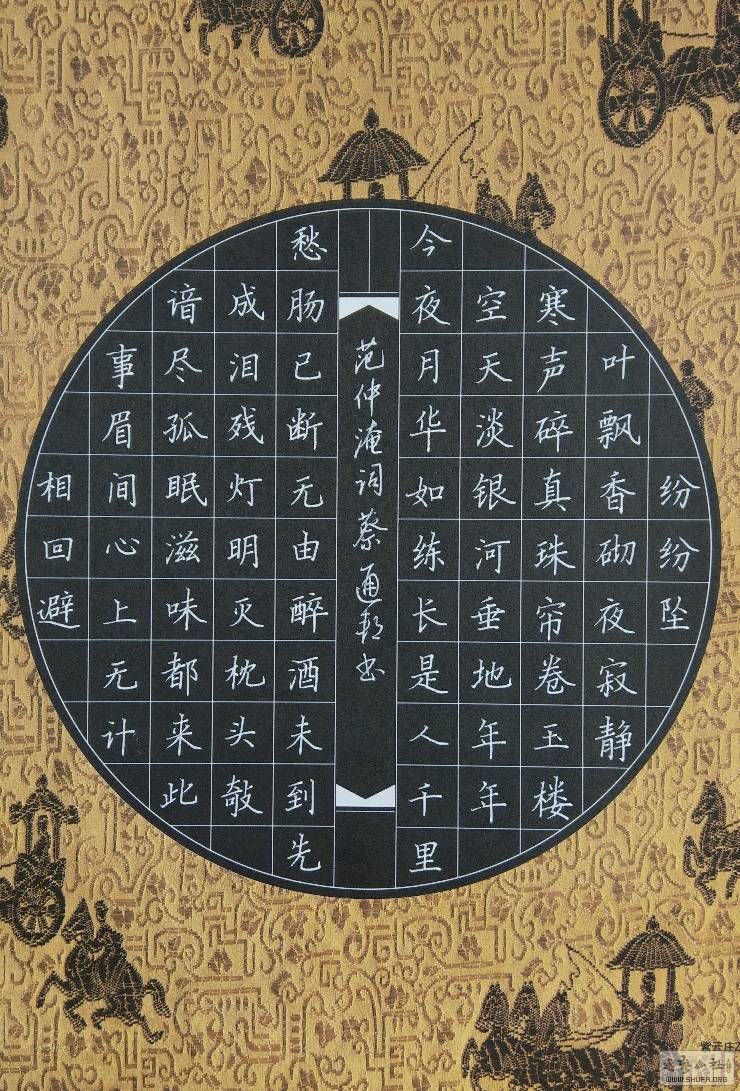 纷纷坠
叶飘香砌夜寂静
寒声碎真珠帘卷玉楼
空天淡银河垂地年年
今夜月华如练长是人千里
范仲淹词蔡通书
愁肠已断无由醉酒未到先
成泪残灯明灭枕头敧
谙尽孤眠滋味都来此
事眉间心上无计
相回避
紫云庄
WWW.SHUFR.ORG